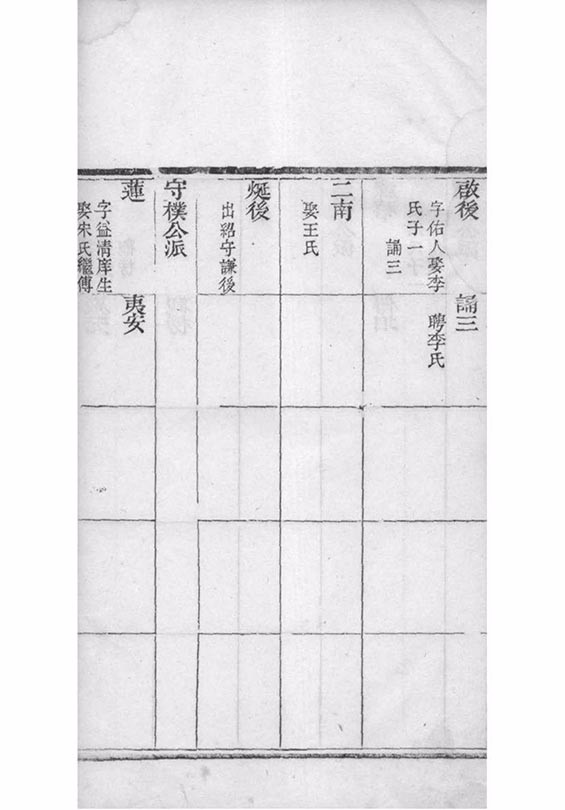 啟後
字佑人娶李
氏子一
誦三
誦三
聘李氏
二南
娶王氏
燕後
出紹守謙後
守樸公派
蓮
字益清庠生
娶宋氏繼傅
夷安